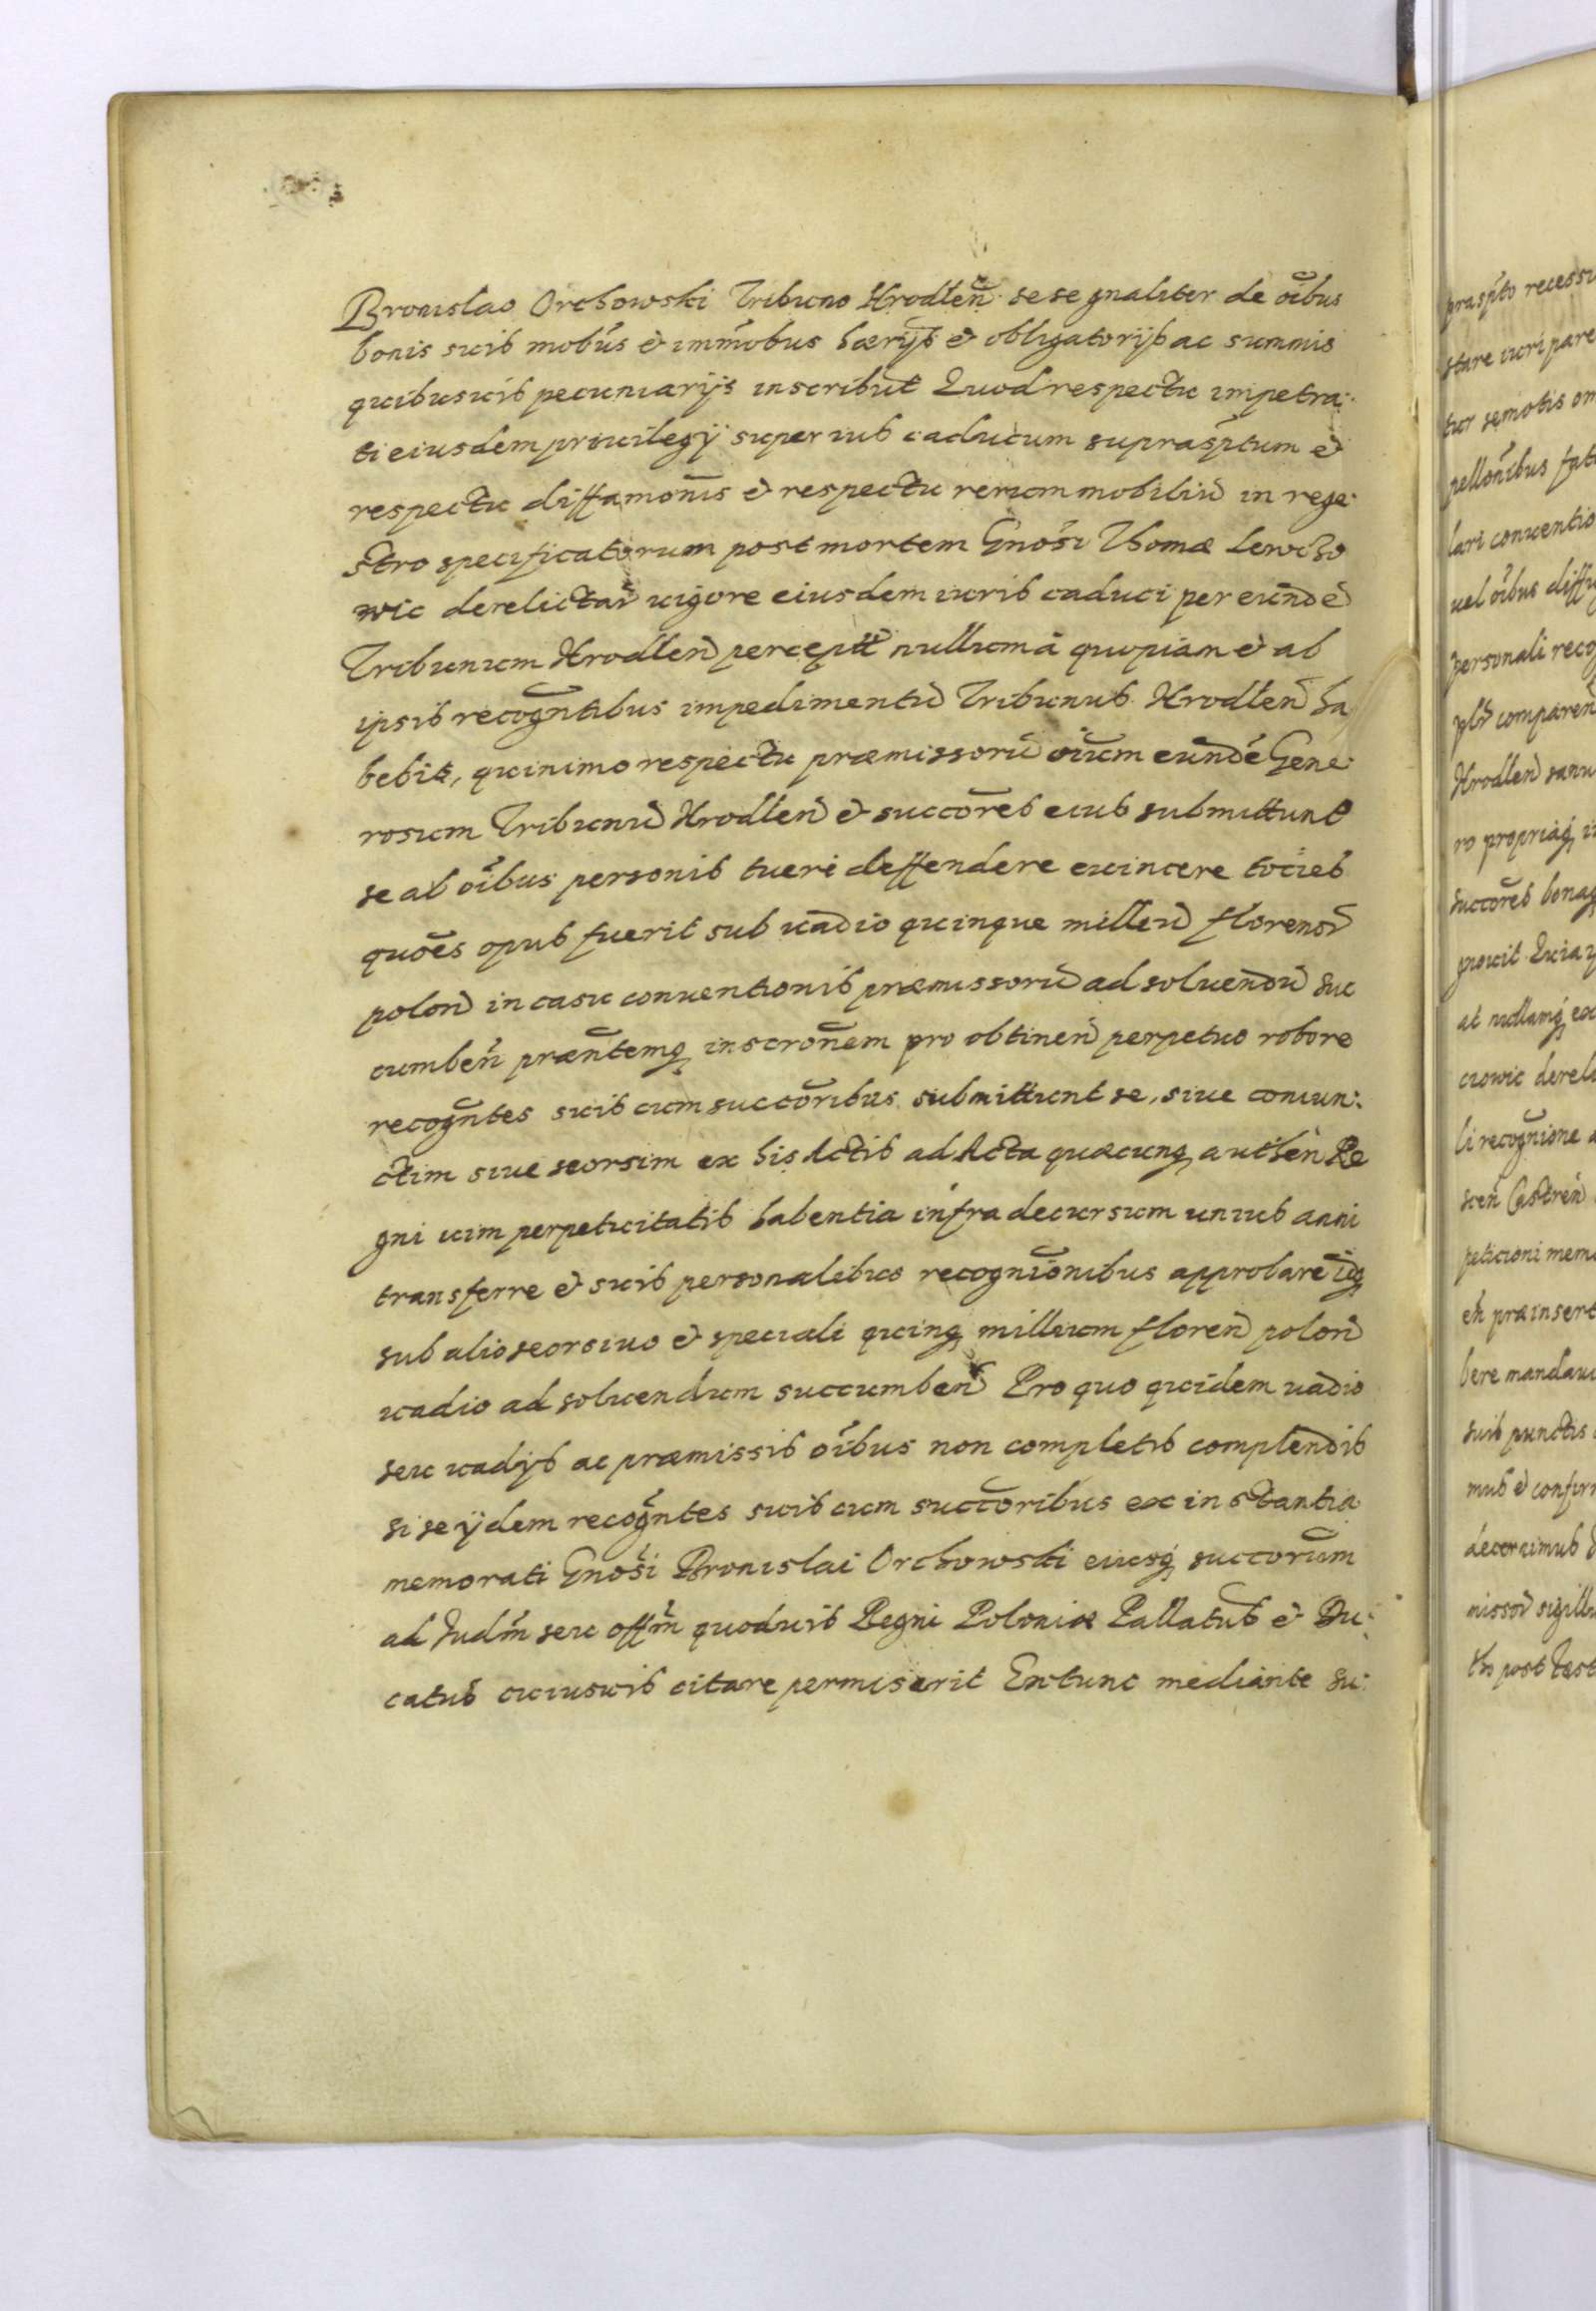 Bronislao Orchowski Tribuno Hrodleñ sese gnaliter de oĩbus
bonis suis mobũs & imm̃obus hærijs & obligatorijs ac summis
quibusuis pecuniarijs inscribũt Quod respectu impetra:
ti eiusdem priuilegij super ius caducum suprasp̃tum &
respectu diffamonis̃ & respectu rerum mobiliũ in rege:
stro specificatorum post mortem Gnõsi Thomæ Lewcho
wic derelictar̃ uigore eiusdem iuris caduci per eundẽ
Tribunum Hrodleñ percept̃ nullum à quopiam & ab
ipsis recogñtibus impedimentũ Tribunus Hrodleñ ha
bebit, quinimo respectu præmissorũ oĩum eundẽ Gene:
rosum Tribunũ Hrodleñ & succõres eius submittunt
se ab oĩbus personis tueri deffendere euincere tocies
quões opus fuerit sub uadio quinque milleñ florenor̃
poloñ in casu conuentionis præmissorũ ad soluendũ suc
cumbeñ præñtemq̃ inscrõnem pro obtineñ perpetuo robore
recogñtes suis cum succõribus submittunt se, siue coniun:
ctim siue seorsim ex his Actis ad Acta quæcunq̃ autheñ Re
gni uim perpetuitatis habentia infra decursum unius anni
transferre & suis personalibus recognĩonibus approbare idq̃
sub alio seorsiuo & speciali quinq̃ millium floreñ poloñ
uadio ad soluendum succumbeñ Pro quo quidem uadio
seu uadijs ac præmissis oĩbus non completis complendis
si se ijdem recogñtes suis cum succõribus ex instantia
memorati Gnõsi Bronislai Orchowski eiusq̃ succõrum
ad Judm̃ seu offm̃ quoduis Regni Poloniæ Pallatus̃ & Du:
catus̃ cuiusuis citare permiserit Extunc mediante su:
præsp̃to recessu
stare iuri pare
tur semotis om
pellonĩbus
lari conuentio
uel oĩbus
personali
comparen
Hrodleñ
ro propriaq̃
succõres bonaq̃
Quia
at nullamq̃
derel
li recognĩone
Castreñ
peticioni
præinsert
bere mandaui
suis punctis
mus & confir
decernimus
sigillu
post